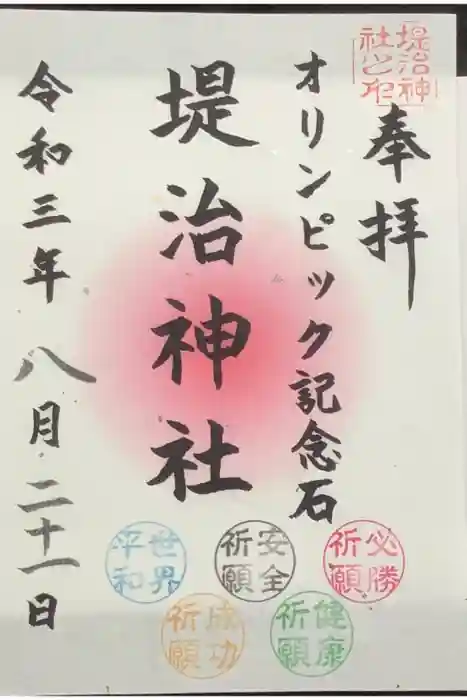 堤治神社之印
奉拝
オリンピック記念石
堤治神社
令和三年八月二十一日
必勝祈願
安全祈願
世界平和
健康祈願
成功祈願